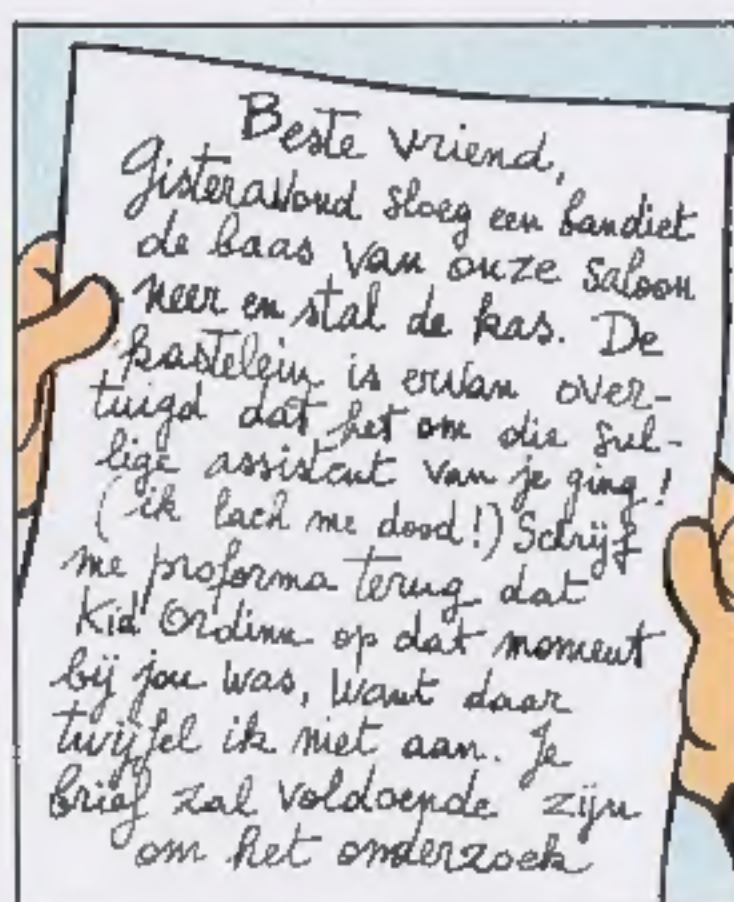 Beste vriend,
Gisteravond sloeg een bandiet
de baas van onze saloon
neer en stal de kas. De
kastelein is ervan over-
tuigd dat het om die sul-
lige assistent van je ging!
(ik lach me dood!) Schrijf
me proforma terug dat
Kid Ordinn op dat moment
bij jou was, want daar
twijfel ik niet aan. Je
brief zal voldoende zijn
om het onderzoek